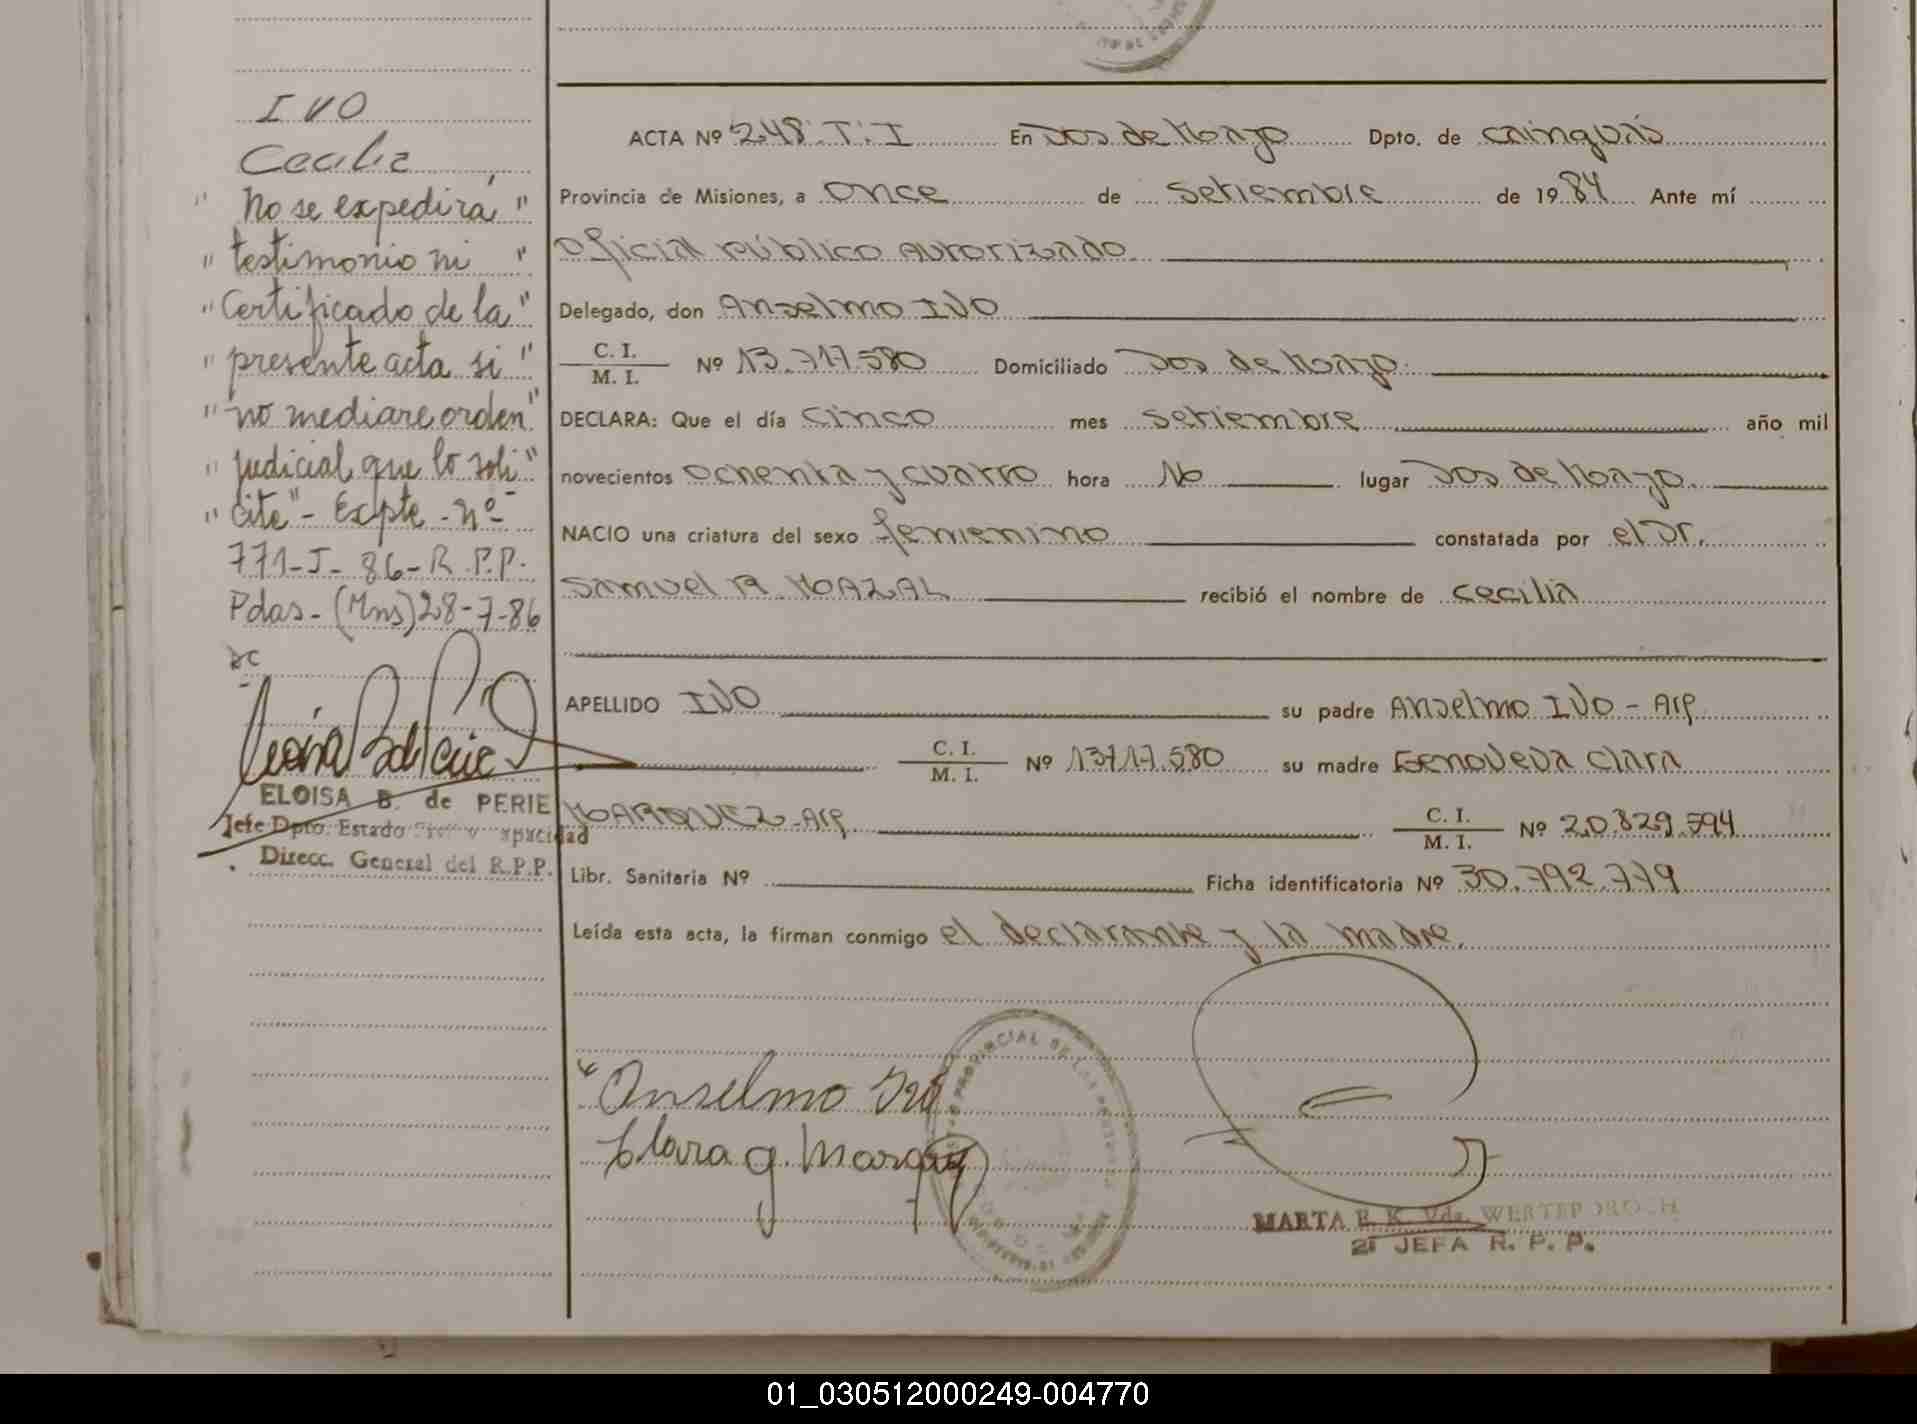 IVO
Cecilia
" No se expedirá "
" testimonio ni "
" Certificado de la "
" presente acta si "
" no mediare orden "
" judicial que lo soli "
" cite " - Expte - nº -
771-J-86-R.P.P.
Pdas - (Mns) 28-7-86
ELOISA B. de PERIE
Jefe Dpto. Estado Civil y Capacidad
Direcc. General del R.P.P.
ACTA Nº 248. T. I En Dos de Mayo Dpto. de Cainguás
Provincia de Misiones, a once de Setiembre de 1984 Ante mí
Oficial Público Autorizado
Delegado, don Anselmo IVO
C. I. / M. I. Nº 13.717.580 Domiciliado Dos de Mayo.
DECLARA: Que el día cinco mes setiembre año mil
novecientos ochenta y cuatro hora 16 lugar Dos de Mayo.
NACIO una criatura del sexo femienino constatada por el Dr.
Samuel A. MAZAL recibió el nombre de Cecilia
APELLIDO IVO su padre Anselmo IVO - Arg.
C. I. / M. I. Nº 13717.580 su madre Genoveva Clara
MARQUEZ - Arg. C. I. / M. I. Nº 20.829.594
Libr. Sanitaria Nº Ficha identificatoria Nº 30.792.779
Leída esta acta, la firman conmigo el declarante y la madre.
Anselmo Ivo
Clara g. Marquez
PROVINCIAL DE LAS PERSONAS
MARTA E. K. Vda. WERTEPOROCH
2ª JEFA R. P. P.
01_030512000249-004770